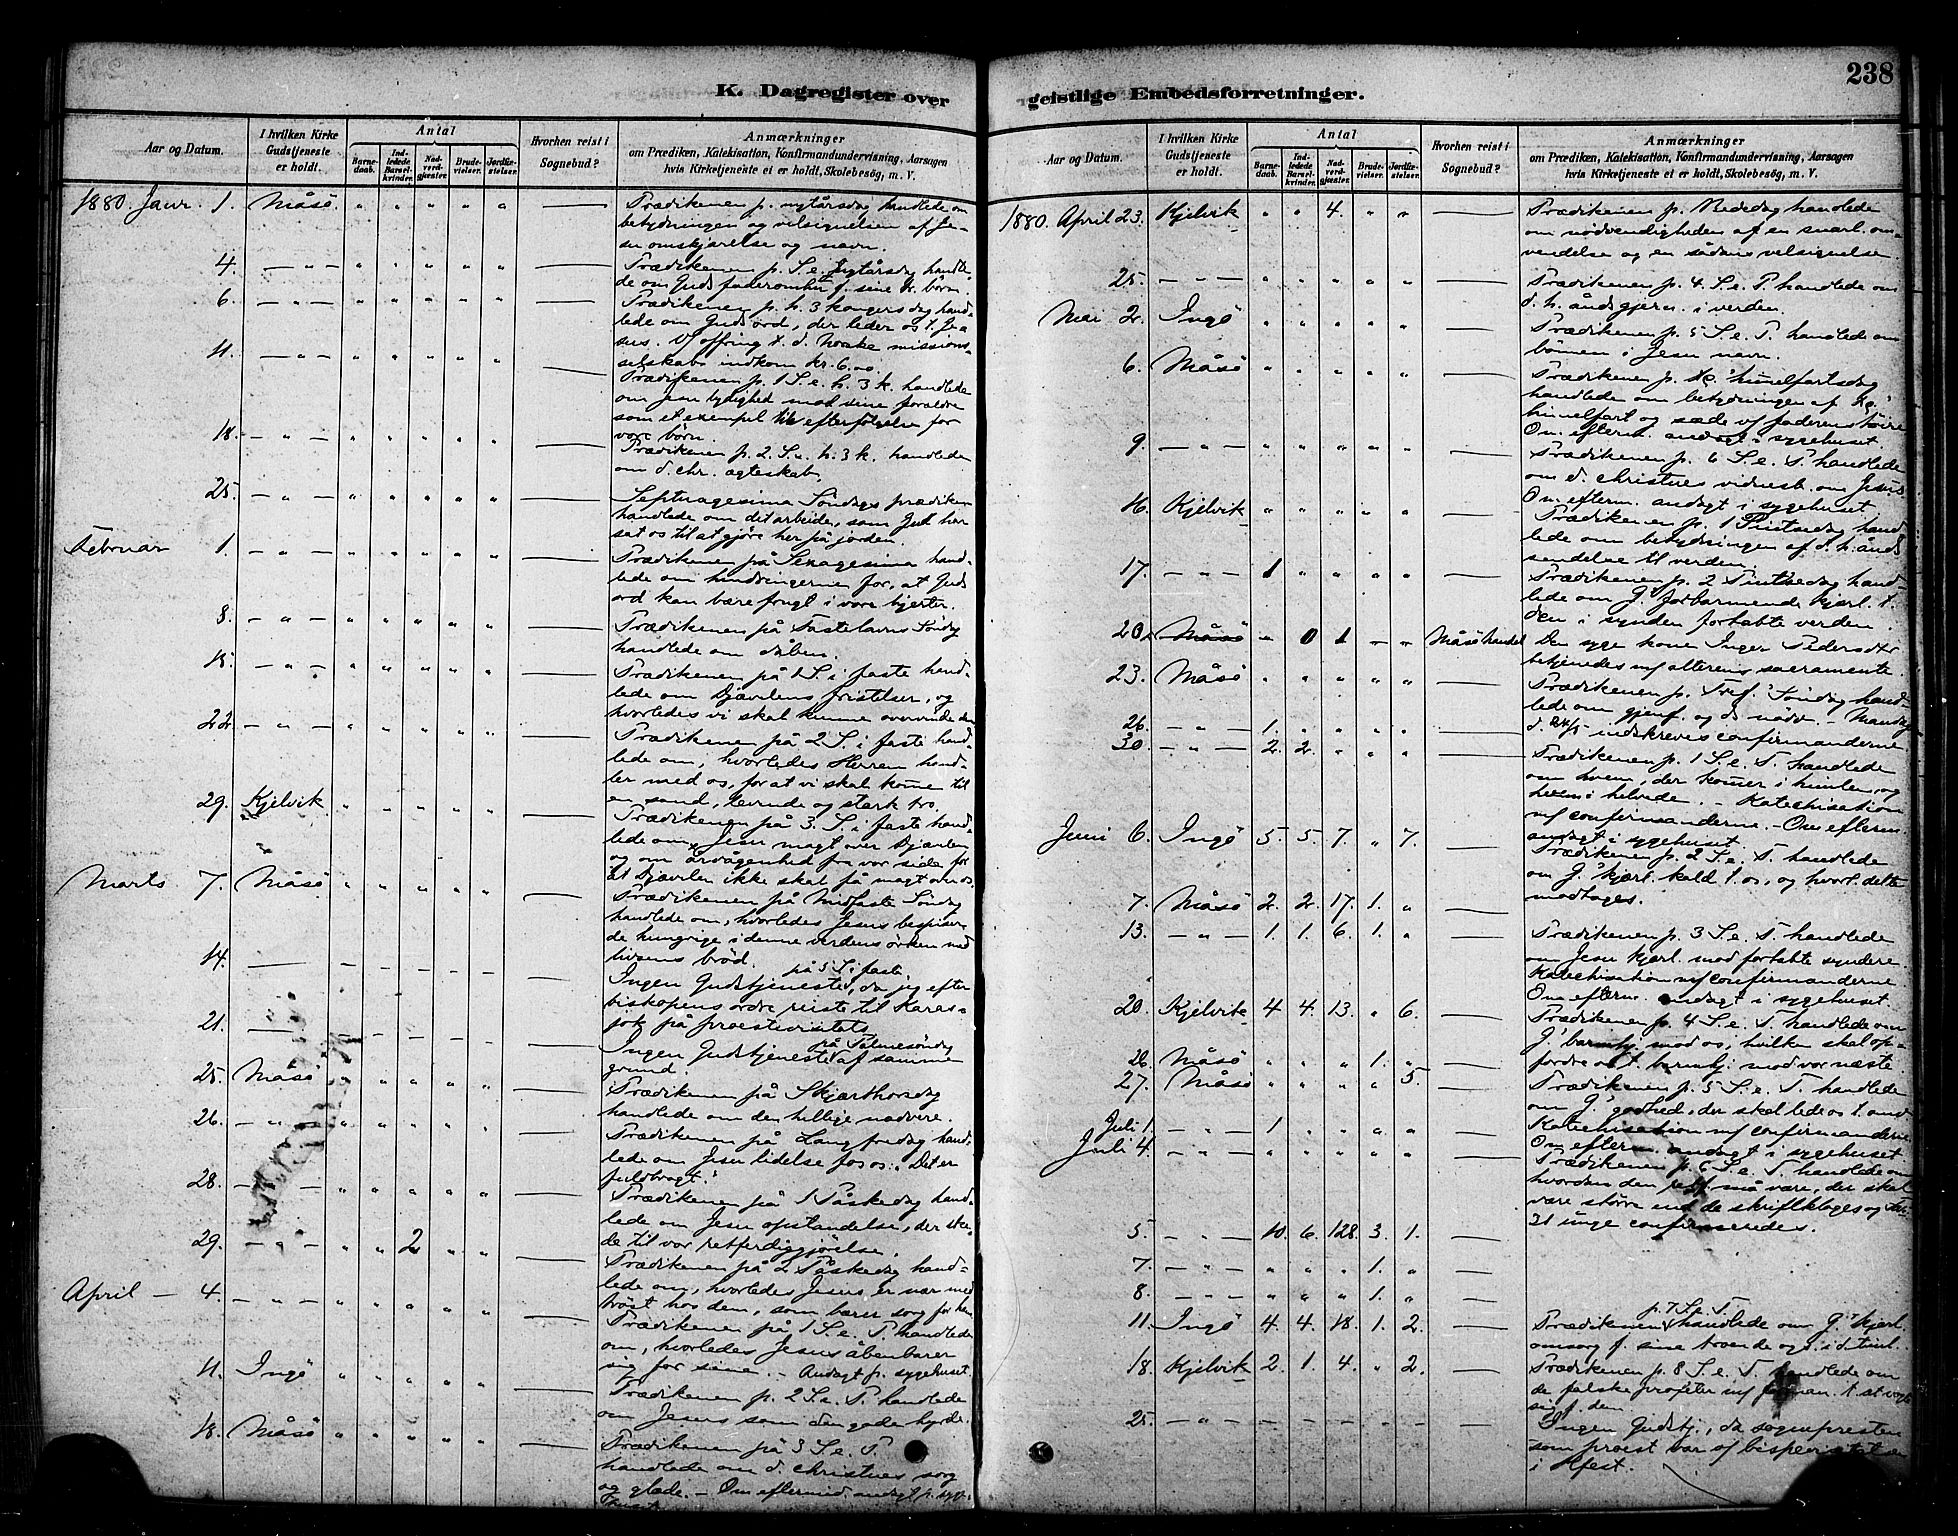 238
K. Dagregister over
geistlige Embedsforretninger.
Aar og Datum.
I hvilken Kirke
Gudstjeneste
er holdt.
Antal
Barne-
daab.
Ind-
ledede
Barsel-
kvinder.
Nad-
verd-
gjæster.
Brude-
vielser.
Jordfæ-
stelser.
Hvorhen reist i
Sognebud?
Anmærkninger
om Prædiken, Katekisation, Konfirmandundervisning, Aarsagen
hvis Kirketjeneste ei er holdt, Skolebesøg, m. V.
1880. Janr. 1. Måsö.
Prædikenen p. nytårsdag handlede om
betydningen og velsignelsen af Je-
su omskjærelse og navn.
4. — " —
Prædikenen p. S. e. nytårsdag handle-
de om Guds faderomhu f. sine kr. børn.
6. — " —
Prædikenen p. h. 3 kongersdag hand-
lede om Guds ord, der leder os t. Je-
sus. Vf offring t. d. norske missions-
selskab indkom kr. 6.00.
11. — " —
Prædikenen p. 1 S. e. h. 3 k. handlede
om Jesu lydighed mod sine forældre
som et exempel til efterfölgelse for
vore börn.
18. — " —
Prædikenen p. 2. S. e. h. 3 k. handlede
om d. chr. ægteskab.
25. — " —
Septuagesima Söndags prædiken
handlede om det arbeide, som Gud har
sat os til at gjöre her på jorden.
Februar 1. — " —
Prædikenen på Sexagesima hand-
lede om hindringerne for, at Guds
ord kan bære frugt i vore hjerter.
8. — " —
Prædikenen på Fastelavns Söndag
handlede om dåben.
15. — " —
Prædikenen på 1 S. i faste hand-
lede om Djævelens fristelser, og
hvorledes vi skal kunne overvinde dem
22. — " —
Prædikenen på 2 S. i faste hand-
lede om, hvorledes Herren hand-
ler med os, for at vi skal komme til
en sand, levende og stærk tro.
29. Kjelvik
Prædikenen på 3. S. i faste hand-
lede om Jesu magt over Djævlen
og om årvågenhed fra vor side for
at Djævlen ikke skal få magt over os.
Marts 7. Måsö
Prædikenen på Midfaste Söndag
handlede om, hvorledes Jesus bespiser
de hungrige i denne verdens örken med
livsens bröd.
14. —
på 5 S. i faste
Ingen Gudstjeneste, da jeg efter
biskopens ordre reiste til Karas-
jok på proestevisitats
21. —
på Palmesöndag
Ingen Gudstjeneste af samme
grund.
25. Måsö
Prædikenen på Skjærthorsdag
handlede om den hellige nadvere.
26. — " —
Prædikenen på Langfredag hand-
lede om Jesu lidelse for os: "Det er
fuldbragt."
28. — " —
Prædikenen på 1 Påskedag hand-
lede om Jesu opstandelse, der ske-
de til vor retferdiggjörelse.
29. — " — 2
Prædikenen på 2 Påskedag hand-
lede om, hvorledes Jesus er nær med
tröst hos dem, som bærer sorg for ham
April — 4. — " —
Prædikenen på 1 S. e. P. handlede
om, hvorledes Jesus åbenbarer
sig for sine. — Andagt p. sygehuset.
11. Ingö
Prædikenen p. 2 S. e. P. handlede
om Jesus som den gode hyrde.
18. Måsö
Prædikenen på 3 S. e. P.
handlede om d. christnes sorg
og glæde. — Om eftermid. andagt p. syge-
huset.
Aar og Datum.
I hvilken Kirke
Gudstjeneste
er holdt.
Antal
Barne-
daab.
Ind-
ledede
Barsel-
kvinder.
Nad-
verd-
gjæster.
Brude-
vielser.
Jordfæ-
stelser.
Hvorhen reist i
Sognebud?
Anmærkninger
om Prædiken, Katekisation, Konfirmandundervisning, Aarsagen
hvis Kirketjeneste ei er holdt, Skolebesøg, m. V.
1880. April 23. Kjelvik " " 4. " "
Prædikenen p. Bededag handlede
om nödvendigheden af en snarl. om-
vendelse og en sådans velsignelse.
25. — " —
Prædikenen p. 4. S. e. P. handlede om
d. h. ånds gjern. i verden.
Mai 2. Ingö
Prædikenen p. 5 S. e. P. handlede om
bönnen i Jesu navn.
6. Måsö
Prædikenen p. Kr. himelfartsdag
handlede om betydningen af Kr.'
himelfart og sæde vf faderens höire
Om efterm. andagt i sygehuset.
9. — " —
Prædikenen p. 6 S. e. P. handlede
om d. christnes vidnesb. om Jesus.
Om efterm. andagt i sygehuset.
16. Kjelvik
Prædikenen p. 1 Pintsedag hand-
lede om betydningen af d. h. ånds
sendelse til verden.
17. — " — 1
Prædikenen p. 2 Pintsedag hand-
lede om G' forbarmende kjærl. t.
den i synden fortabte verden.
20. Måsö — 0 1 — " Måsö handel
Den syge kone Inger Pedersdtr
betjenedes mf alterens sacramente.
23. Måsö
Prædikenen p. Tref. Söndag hand-
lede om gjenf. og ds nödv. — Mandag
d. 24/5 indskreves confirmanderne.
26. — " — 1.
30. — " — 2. 2.
Prædikenen p. 1 S. e. T. handlede
om hvem, der kommer i himlen, og
hvem i helvede. — Katechisation
mf confirmanderne. — Om efterm.
andagt i sygehuset.
Juni 6. Ingö 5. 5. 7. " 7.
Prædikenen p. 2 S. e. T. handlede
om G.' kjærl. kald t. os, og hvorl. dette
modtages.
7. Måsö 2. 2. 17. 1. "
13. — " — 1. 1. 6. 1. "
Prædikenen p. 3 S. e. T. handlede
om Jesu kjærl. mod fortabte syndere.
Katechisation mf confirmanderne
Om efterm. andagt i sygehuset.
20. Kjelvik 4 4. 13. " 6.
Prædikenen p. 4 S. e. T. handlede om
G.' barmhj. mod os, hvilken skal op-
fordre os t. barmhj. mod vor næste
26. Måsö " " " 1. "
27. Måsö " " " " 5.
Prædikenen p. 5 S. e. T. handlede
om G.' godhed, der skal lede os t. omv.
Katechisation mf confirmanderne.
Om efterm. andagt i sygehuset
Juli 1. — " — 1
Juli 4. — " —
Prædikenen p. 6 S. e. T. handlede om
hvordan den retf. må være, der skal
være större end de skriftkloges og Far.
21 unge confirmeredes.
5. — " — 10. 6. 128. 3. 1.
7. — " — " " " 1. "
8. — " — " " " 1. "
11. Ingö 4. 4. 18. 1. 2.
p. 7 S. e. T.
Prædikenen handlede om G.' kjærl.
omsorg f. sine troende også i det timl.
18. Kjelvik 2. 1. 4. " 2.
Prædikenen p. 8 S. e. T. handlede om
de falske profeter mf forman. t. at vogte
sig f. dem.
25. — " —
Ingen Gudstj., da sognepresten
som proest var på bispevisitatsen
i Hfest.